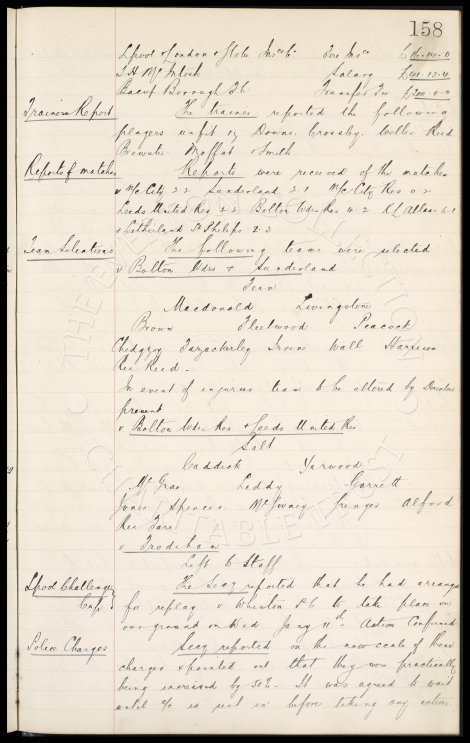 158
Lpool & London & Globe Insce Co. Fire Insce £16-14-0
T.H. McIntosh Salary £101-13-4
Bacup Borough F.C. Transfer Fee £200-0-0
Trainers Report The trainer reported the following
players unfit vz Downs. Crossley. Weller Reid
Brewster. Moffat Smith
Reports of matches Reports were received of the matches
v M/c City 2 2 Sunderland 3 1 M/c City Res 0 2
Leeds United Res 2 2 Bolton Wdrs Res 4-2 6-1
& Litherland St Philips 2 3
Team Selections The following teams were selected
v Bolton Wdrs & Sunderland
Fern
Macdonald Livingstone
Brown Fleetwood Peacock
Chedgzoy Forzackerley Irvine Wall Harrison
Res Reid.
In event of injuries team to be altered by Directors
present
v Bolton Wdrs Res & Leeds United Res
Salt
Caddick Yarwood
McGrae Leddy Garrett
Jones Spencer Grenyer Alford
Res Fare
v Frodsham
Left to Staff
Lpool Challenge Cup The Secy reported that he had arranged
for replay v Whiston P.C. to take place on
our ground on Wed Jany 11th. Action Confirmed
Police Charges Secy reported on the new scale of these
charges & pointed out that they were practically
being increased by 50%. It was agreed to wait
until a/c is sent in before taking any action
THE EVERTON COLLECTION
CHARITABLE TRUST